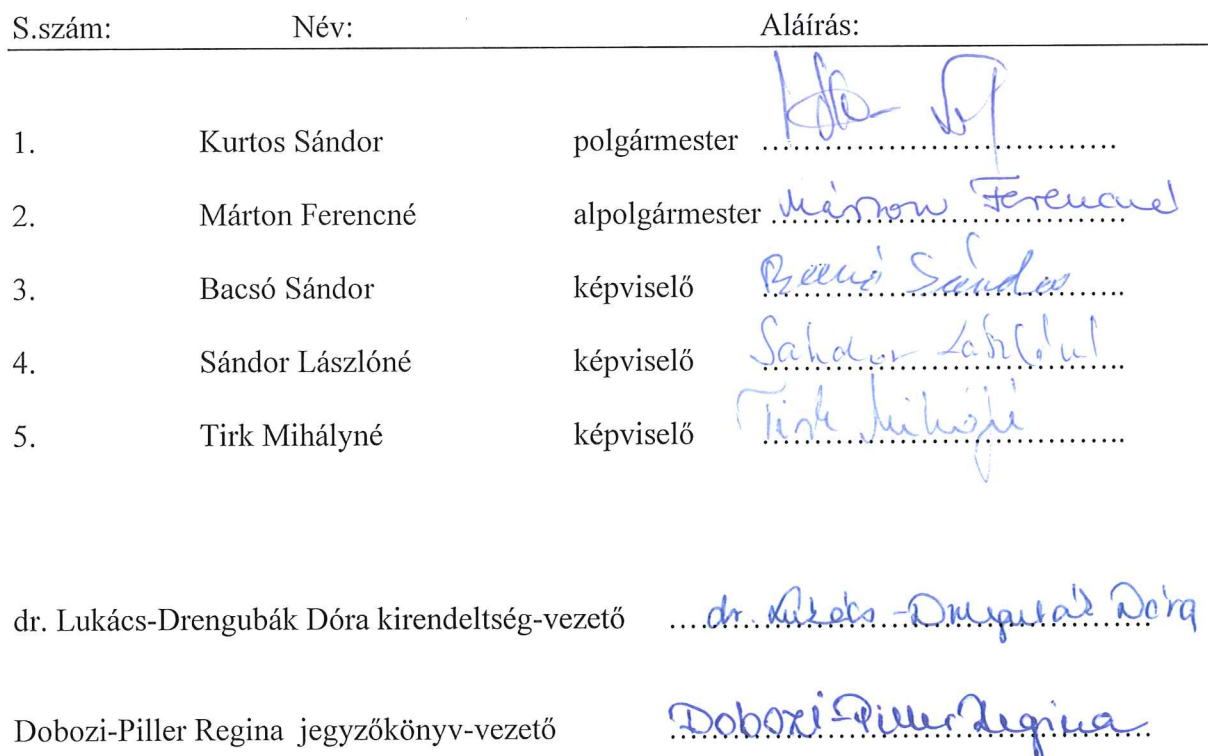 S.szám: Név: Aláírás:
1. Kurtos Sándor polgármester ..................................
2. Márton Ferencné alpolgármester Márton Ferencné
3. Bacsó Sándor képviselő Bacsó Sándor
4. Sándor Lászlóné képviselő Sándor Lászlóné
5. Tirk Mihályné képviselő Tirk Mihályné
dr. Lukács-Drengubák Dóra kirendeltség-vezető dr. Lukács-Drengubák Dóra
Dobozi-Piller Regina jegyzőkönyv-vezető Dobozi-Piller Regina